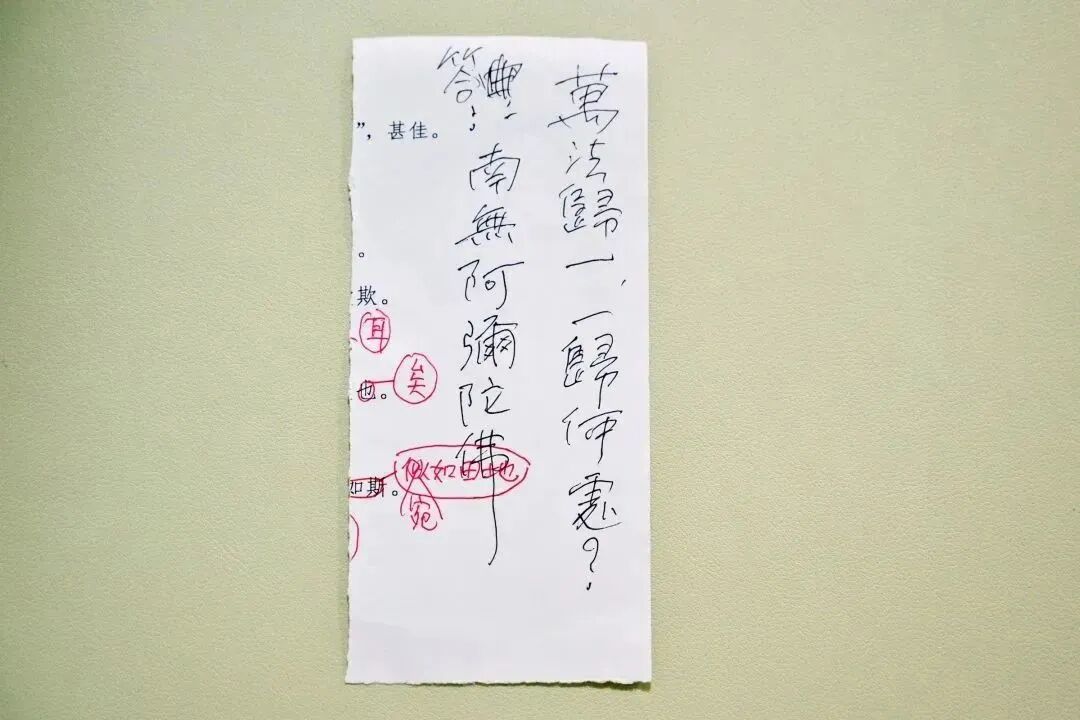 萬法歸一，一歸何處？
答曰：
南無阿彌陀佛
”，甚佳。
。
欺。
耳
也。
矣
如斯。
似如由也
宛